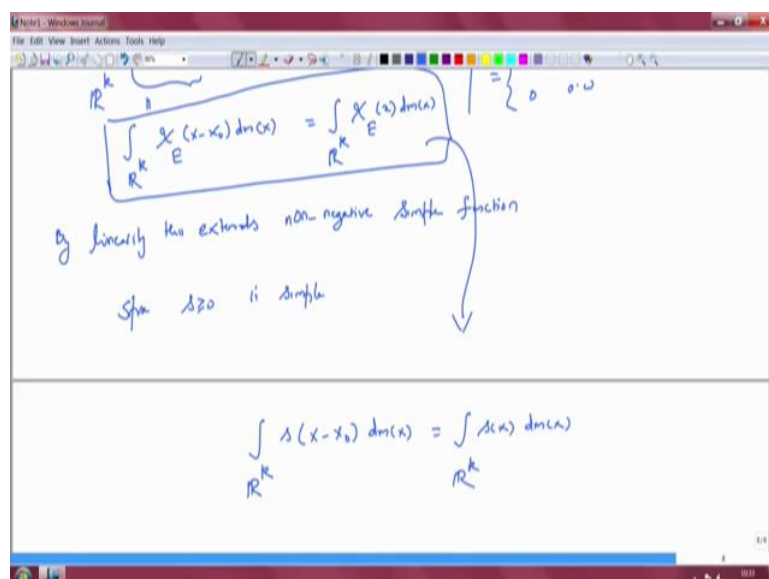 Note1 - Windows Journal
File Edit View Insert Actions Tools Help
ℝ^k
= { 0 o.w
∫_{ℝ^k} χ_E (x-x₀) dm(x) = ∫_{ℝ^k} χ_E (x) dm(x)
By linearity this extends non-negative simple function
Spse s≥0 is simple
∫_{ℝ^k} s(x-x₀) dm(x) = ∫_{ℝ^k} s(x) dm(x)